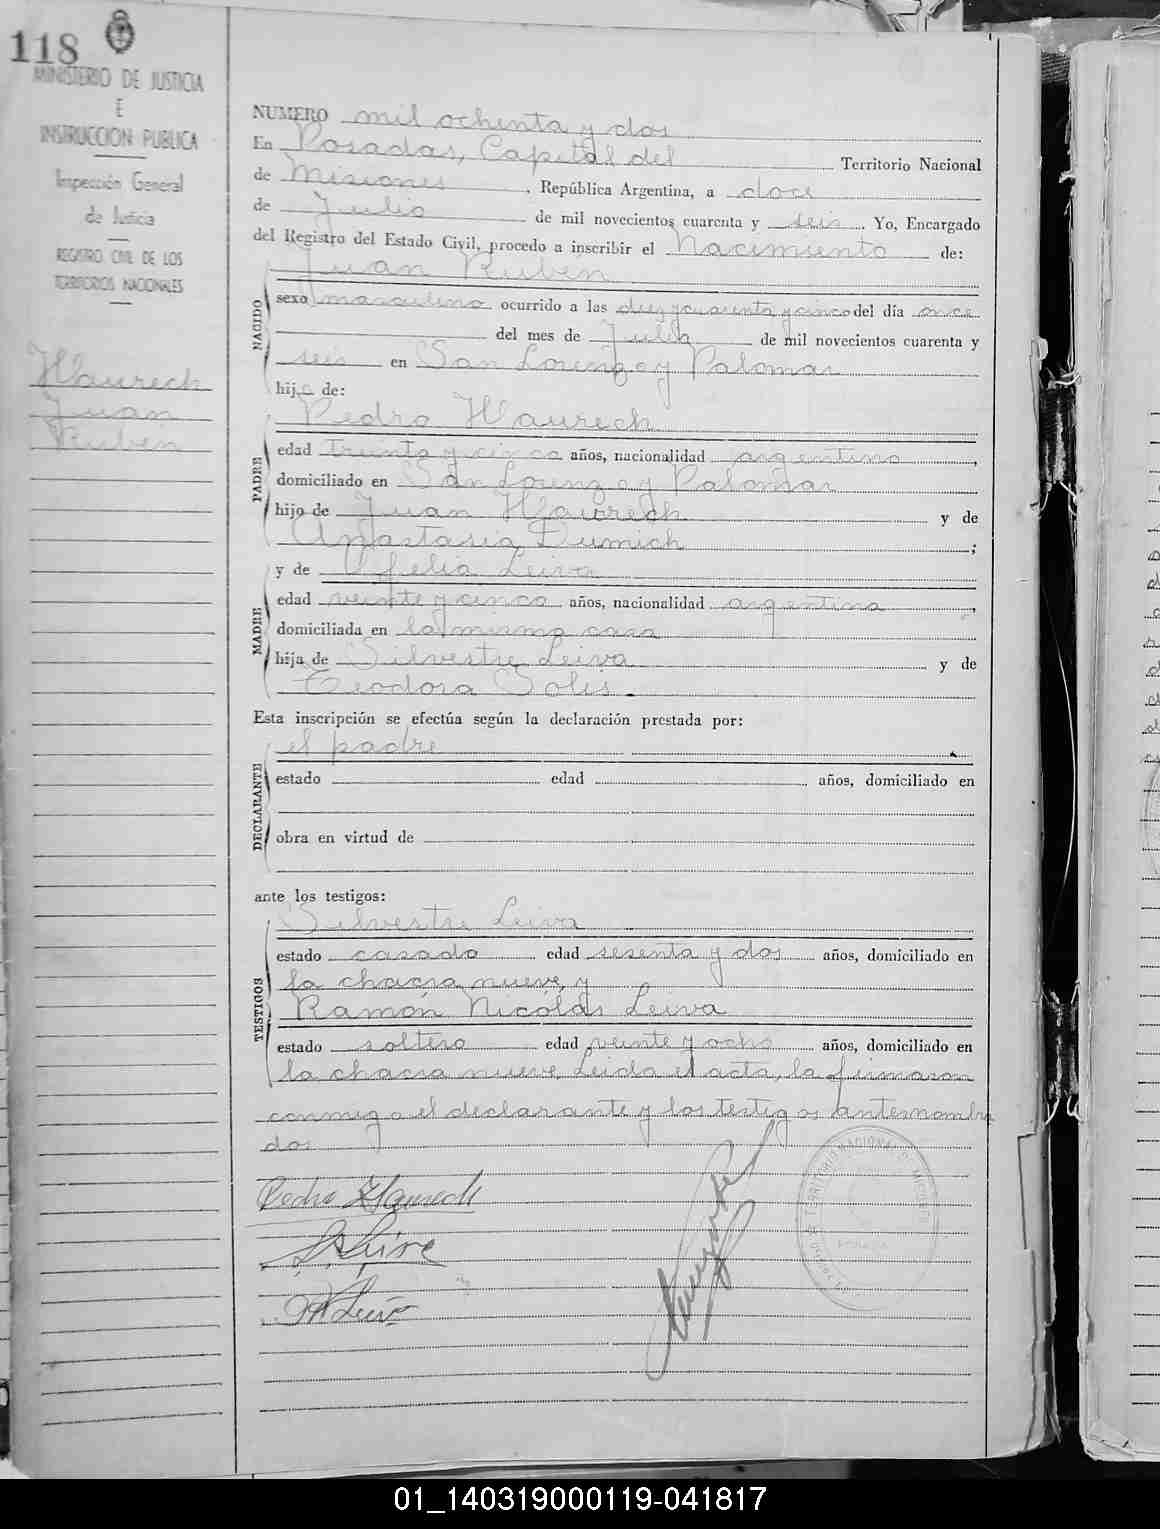 118
MINISTERIO DE JUSTICIA
E
INSTRUCCION PUBLICA
Inspección General
de Justicia
REGISTRO CIVIL DE LOS
TERRITORIOS NACIONALES
Haurech
Juan
Rubén
NUMERO mil ochenta y dos
En Posadas, Capital del Territorio Nacional
de Misiones, República Argentina, a doce
de Julio de mil novecientos cuarenta y seis. Yo, Encargado
del Registro del Estado Civil, procedo a inscribir el Nacimiento de:
Juan Rubén
NACIDO
sexo masculino ocurrido a las diez y cuarenta y cinco del día once
del mes de Julio de mil novecientos cuarenta y
seis en San Lorenzo y Palomar
hijo de:
Pedro Haurech
PADRE
edad treinta y cinco años, nacionalidad argentino,
domiciliado en San Lorenzo y Palomar
hijo de Juan Haurech y de
Anastasia Dumich;
y de Ofelia Leiva
MADRE
edad veinte y cinco años, nacionalidad argentina,
domiciliada en la misma casa
hija de Silvestre Leiva y de
Teodora Solis.
Esta inscripción se efectúa según la declaración prestada por:
el padre
DECLARANTE
estado edad años, domiciliado en
obra en virtud de
ante los testigos:
Silvestre Leiva
TESTIGOS
estado casado edad sesenta y dos años, domiciliado en
la chacra nueve, y
Ramón Nicolás Leiva
estado soltero edad veinte y ocho años, domiciliado en
la chacra nueve. Leida el acta, la firmaron
conmigo el declarante y los testigos antesnombra
dos
Pedro Haurech
S. Leiva
R N Leiva
TERRITORIO NACIONAL DE MISIONES
POSADAS
01_140319000119-041817